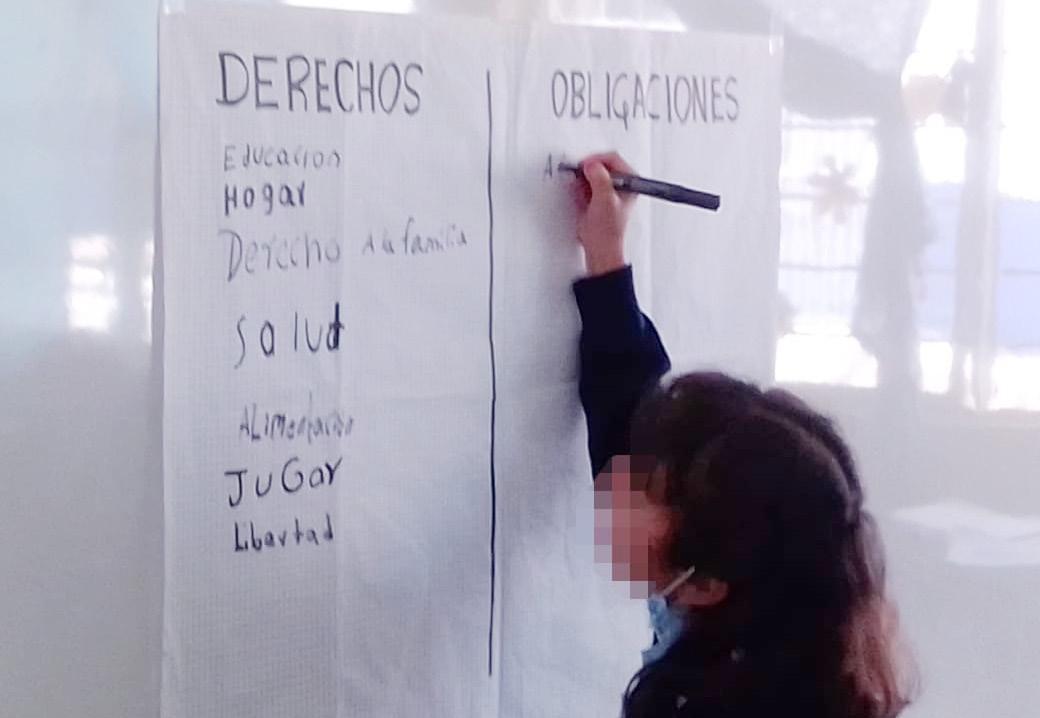 DERECHOS
OBLIGACIONES
Educacion
Hogar
Derecho A la familia
Salud
ALimentación
JUGar
Libertad